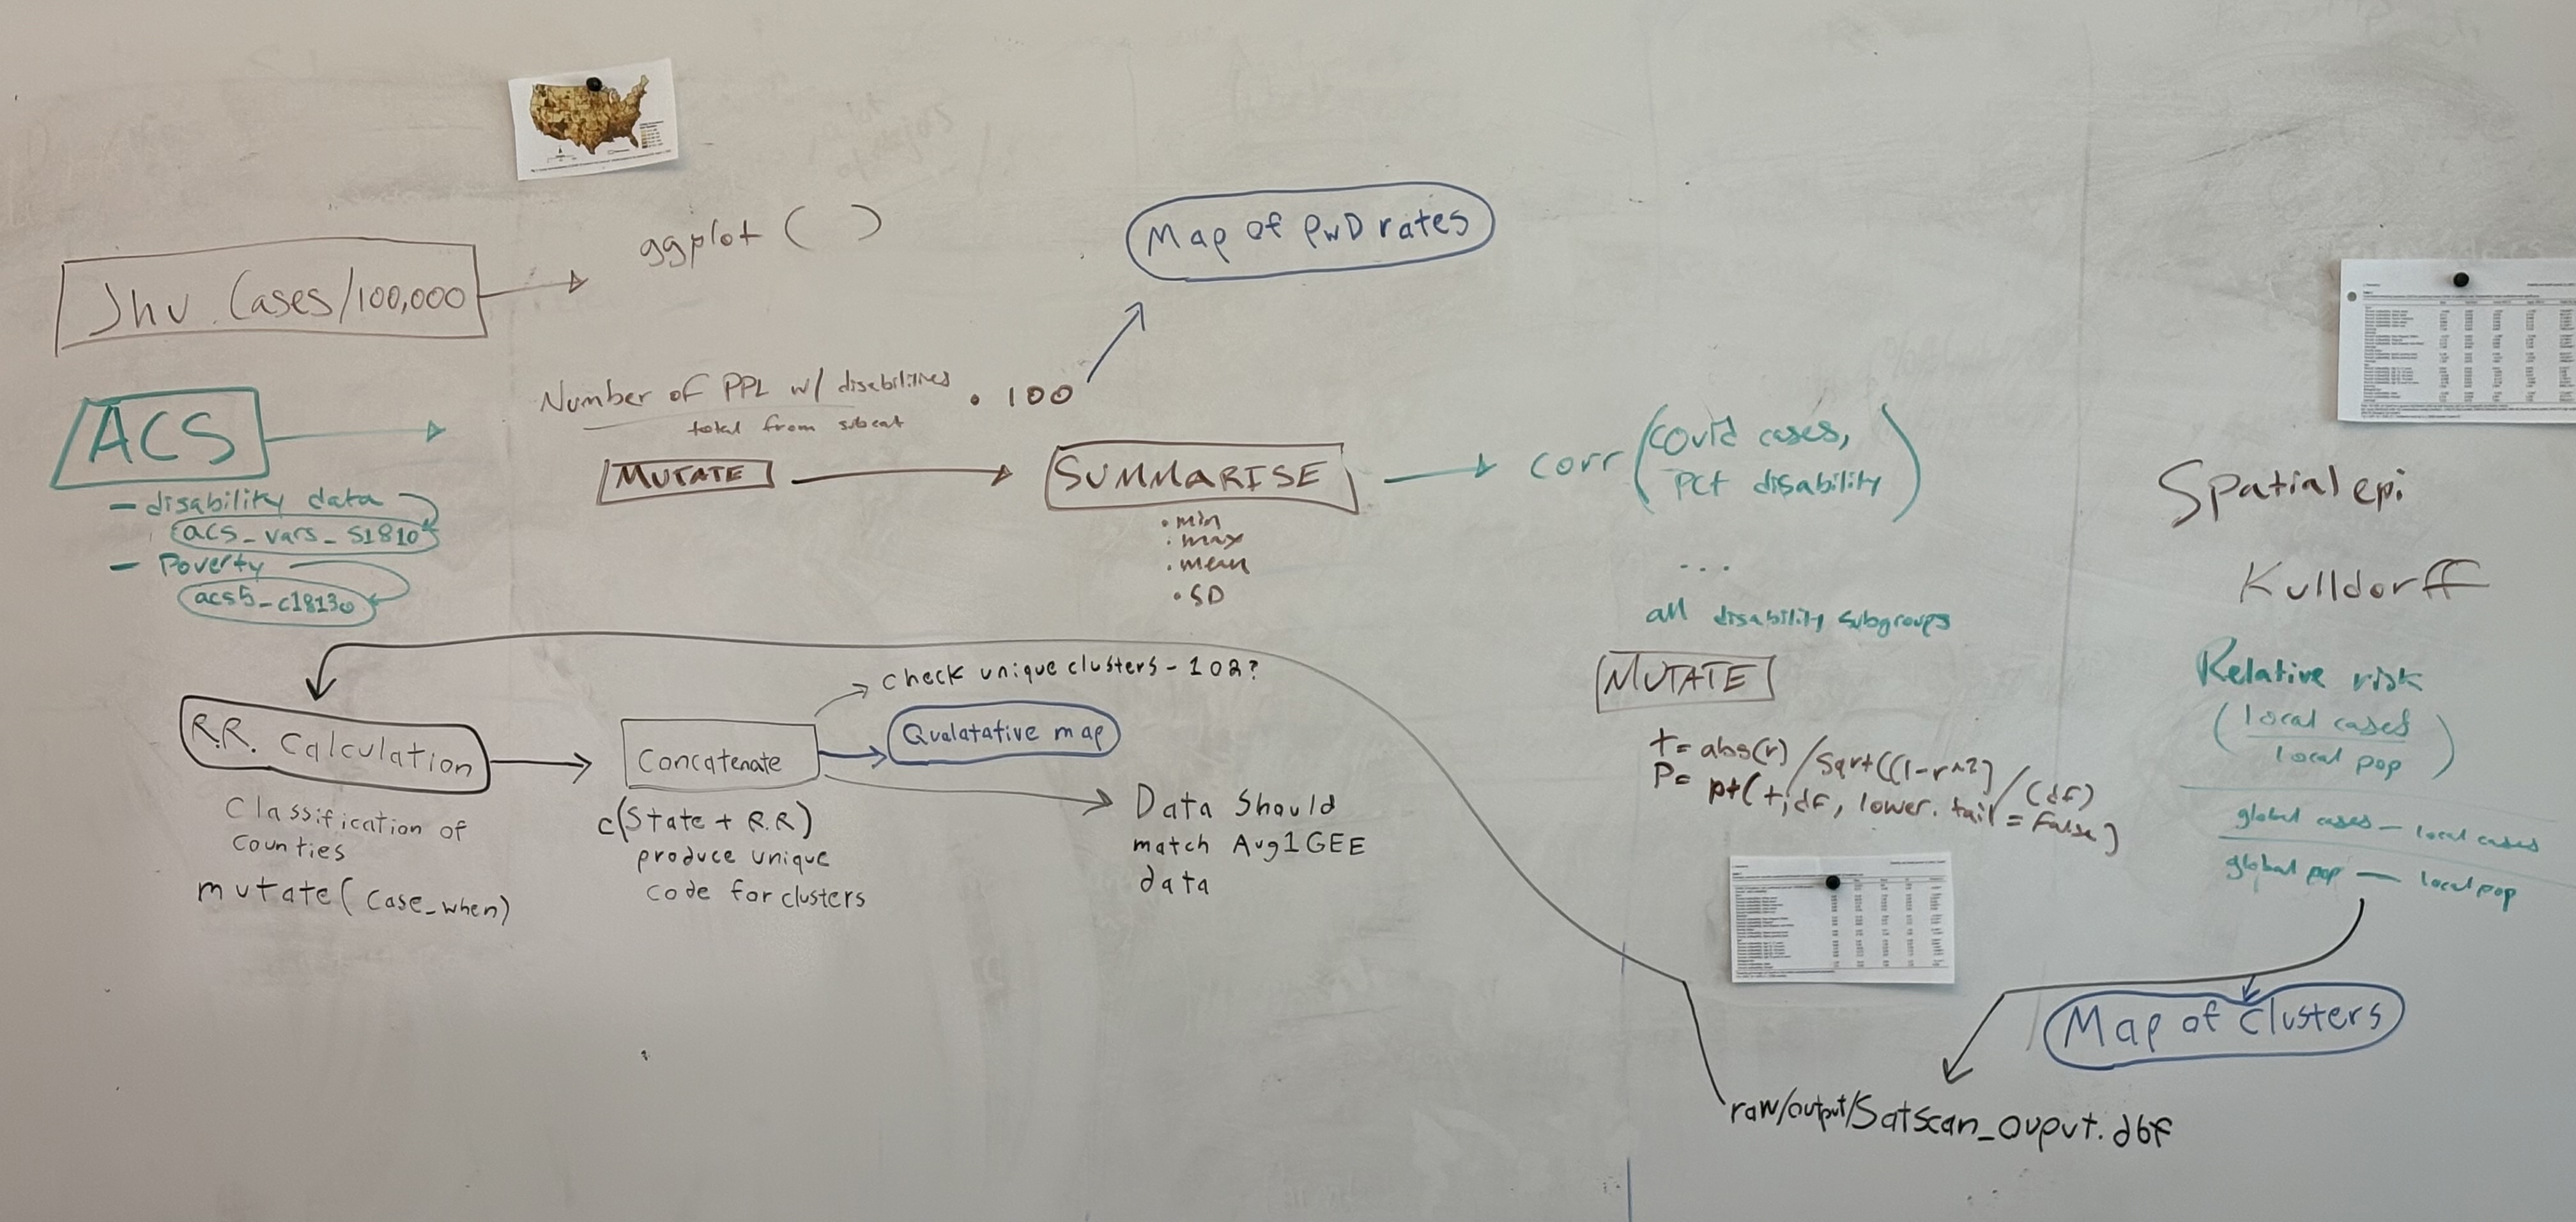 Jhu Cases/100,000
ggplot ( )
Map of PwD rates
ACS
- disability data
acs_vars_S1810
- Poverty
acs5_c18130
Number of PPL w/ disabilities
total from subcat
. 100
MUTATE
SUMMARISE
• min
• max
• mean
• SD
corr (covid cases,
PCt disability)
...
all disability subgroups
MUTATE
t= abs(r) / sqrt((1-r^2) / (df)
P= pt(t, df, lower.tail = False)
Spatial epi
Kulldorff
Relative risk
(local cases
local pop)
global cases - local cases
global pop - local pop
Map of Clusters
raw/output/SatScan_Ouput.dbf
R.R. Calculation
Classification of
Counties
mutate( case_when)
Concatenate
c(State + R.R)
produce unique
code for clusters
check unique clusters - 102?
Qualatative map
Data Should
match Aug1GEE
data